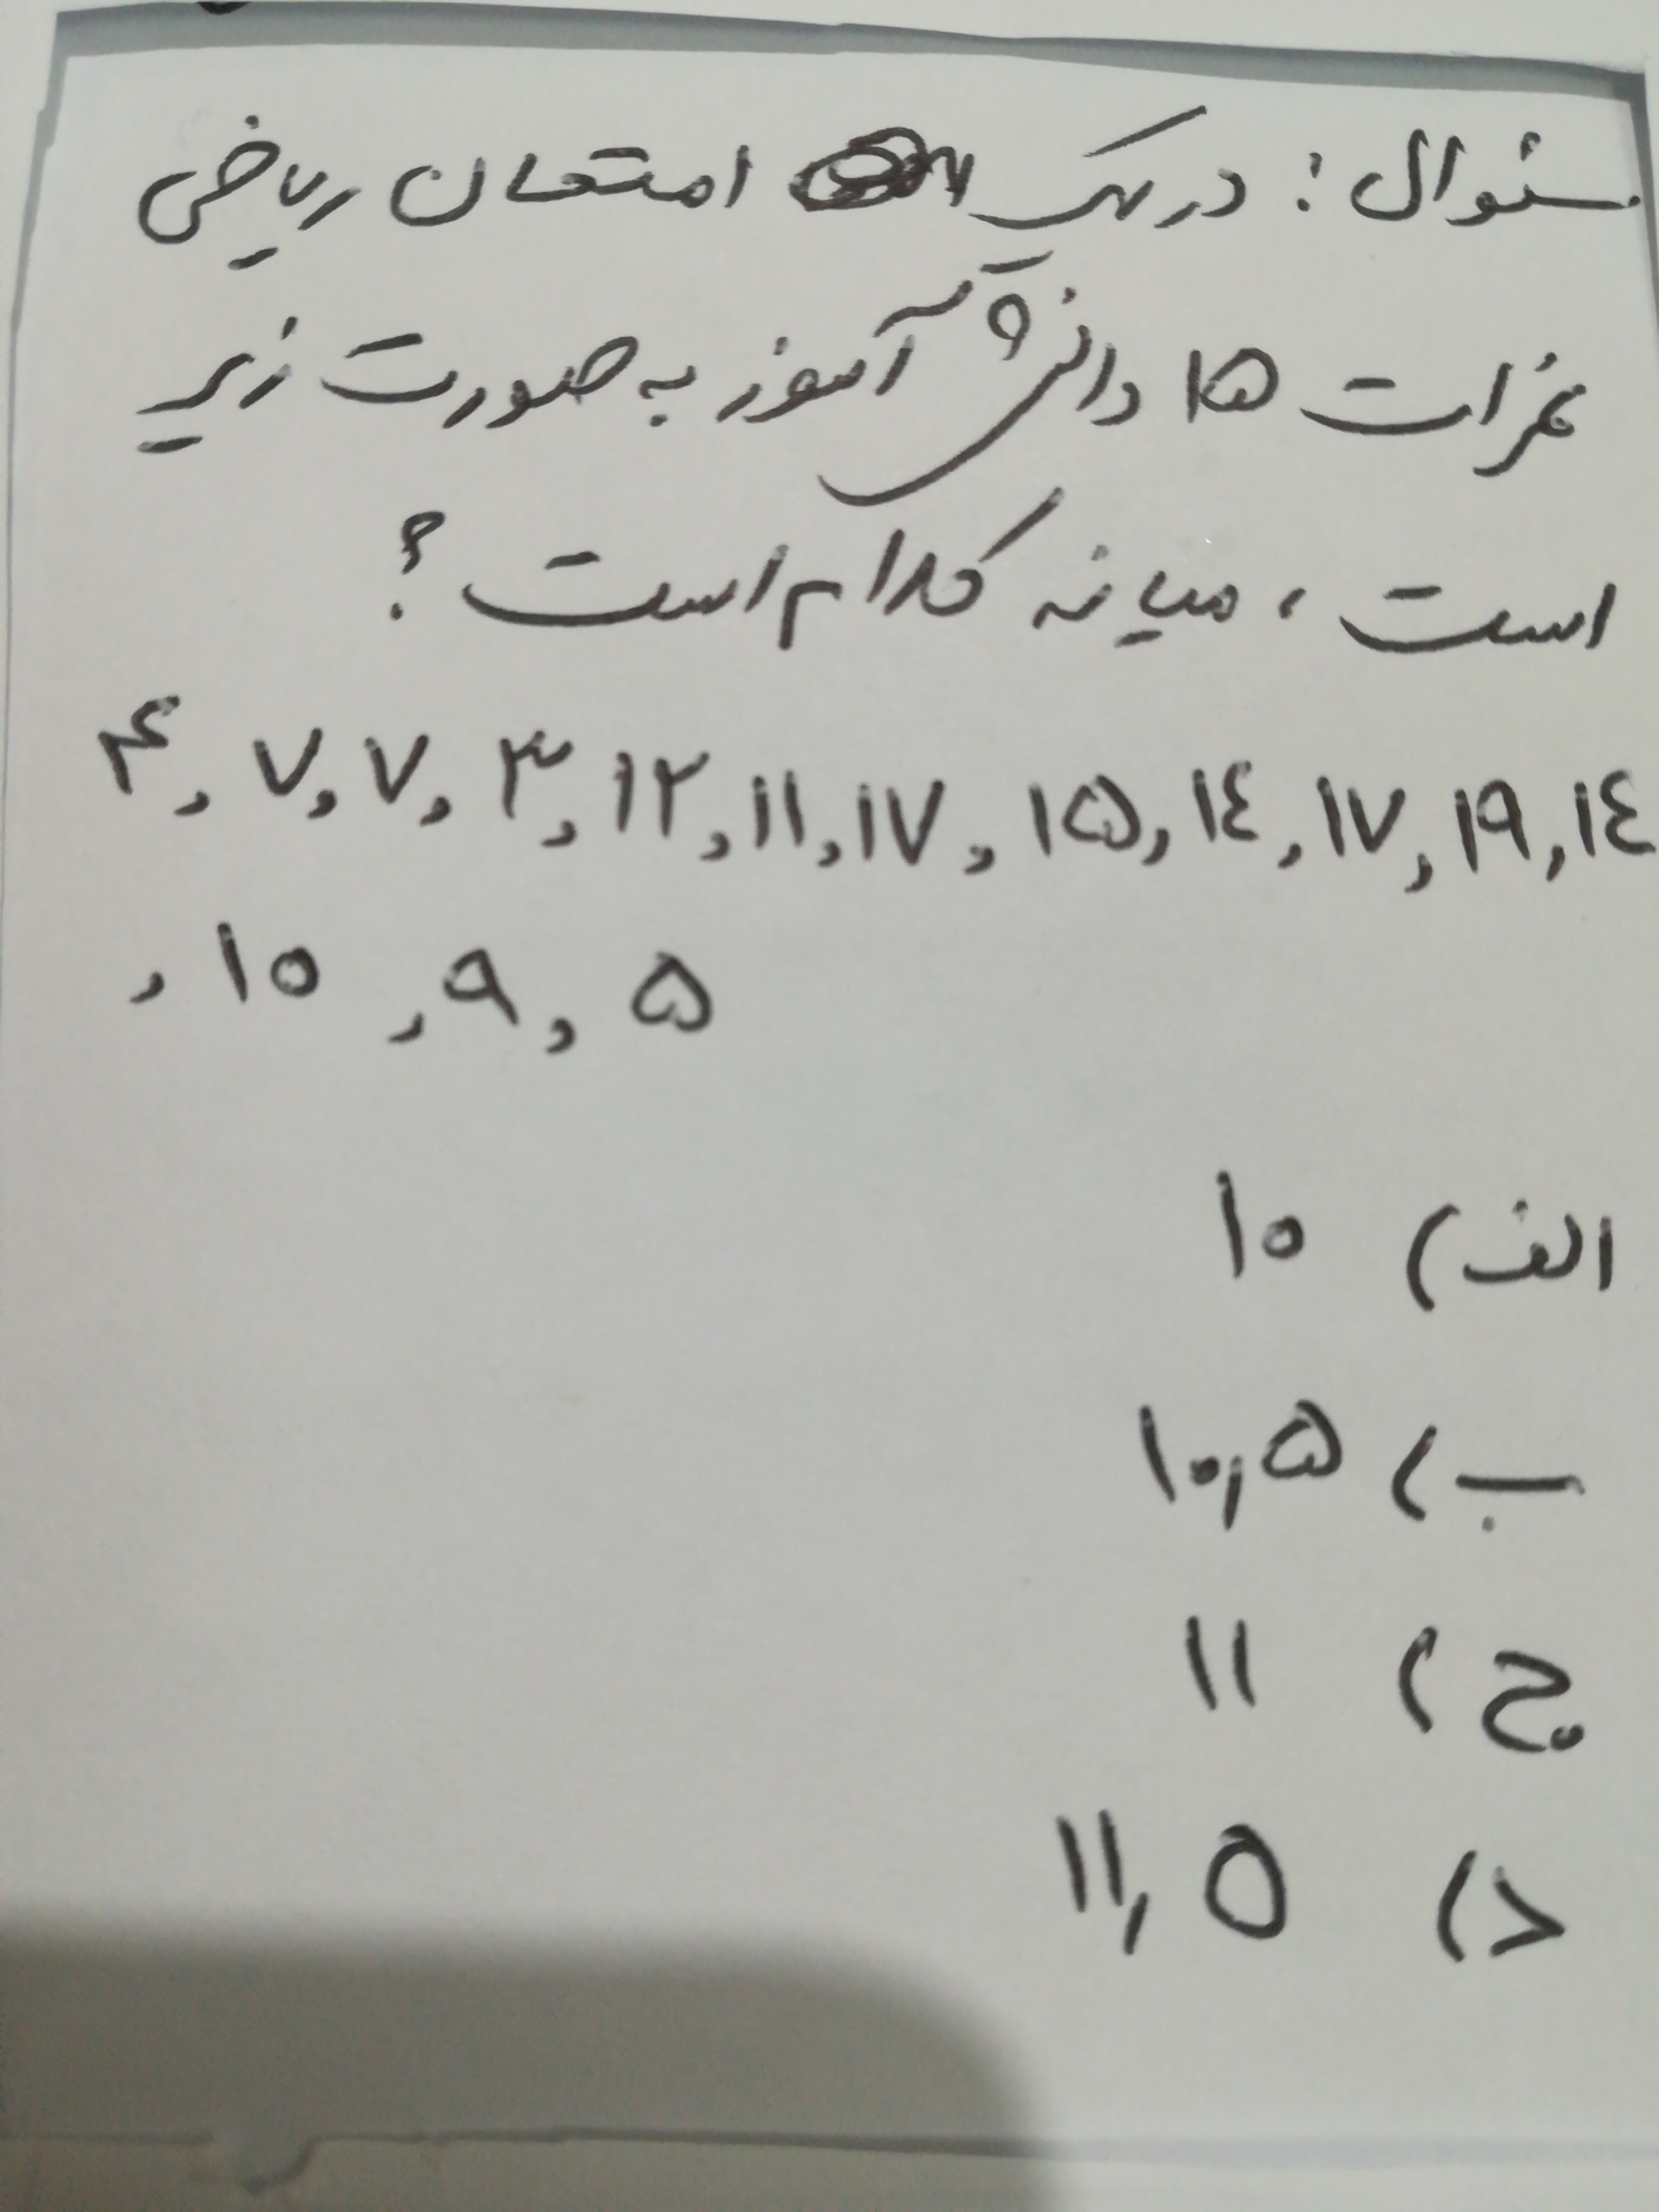 سئوال : در یک امتحان ریاضی
نمرات ۱۵ دانش آموز به صورت زیر
است ، میانه کدام است ؟
۴, ۷, ۷, ۳, ۱۲, ۱۱, ۱۷, ۱۵, ۱٤, ۱۷, ۱۹, ۱٤
, ۱۰ , ۹, ۵
الف) ۱۰
ب) ۱۰,۵
ج) ۱۱
د) ۱۱,۵